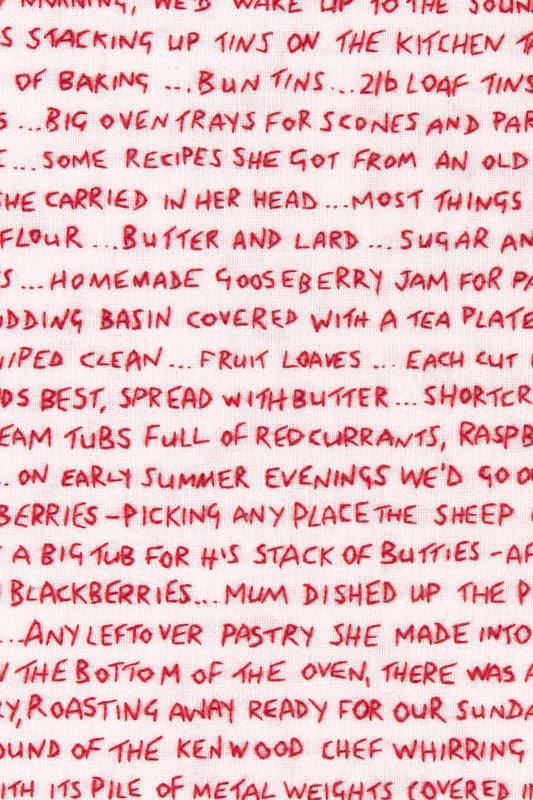 MORNING, WE'D WAKE UP TO THE SOUN
S STACKING UP TINS ON THE KITCHEN TA
OF BAKING ... BUN TINS ... 2lb LOAF TINS
S ... BIG OVEN TRAYS FOR SCONES AND PAR
... SOME RECIPES SHE GOT FROM AN OLD
HE CARRIED IN HER HEAD ... MOST THINGS
FLOUR ... BUTTER AND LARD ... SUGAR AN
S ... HOMEMADE GOOSEBERRY JAM FOR PA
UDDING BASIN COVERED WITH A TEA PLATE
IPED CLEAN ... FRUIT LOAVES ... EACH CUT
DS BEST, SPREAD WITH BUTTER ... SHORTCR
EAM TUBS FULL OF REDCURRANTS, RASPB
.. ON EARLY SUMMER EVENINGS WE'D GO O
BERRIES - PICKING ANY PLACE THE SHEEP
A BIG TUB FOR HIS STACK OF BUTTIES - AF
BLACKBERRIES ... MUM DISHED UP THE P
... ANY LEFTOVER PASTRY SHE MADE INTO
N THE BOTTOM OF THE OVEN, THERE WAS A
RY, ROASTING AWAY READY FOR OUR SUNDA
OUND OF THE KENWOOD CHEF WHIRRING
ITH ITS PILE OF METAL WEIGHTS COVERED I